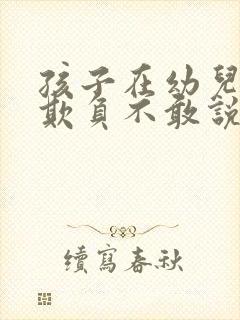 孩子在幼兒
欺負不敢說
續寫春秋